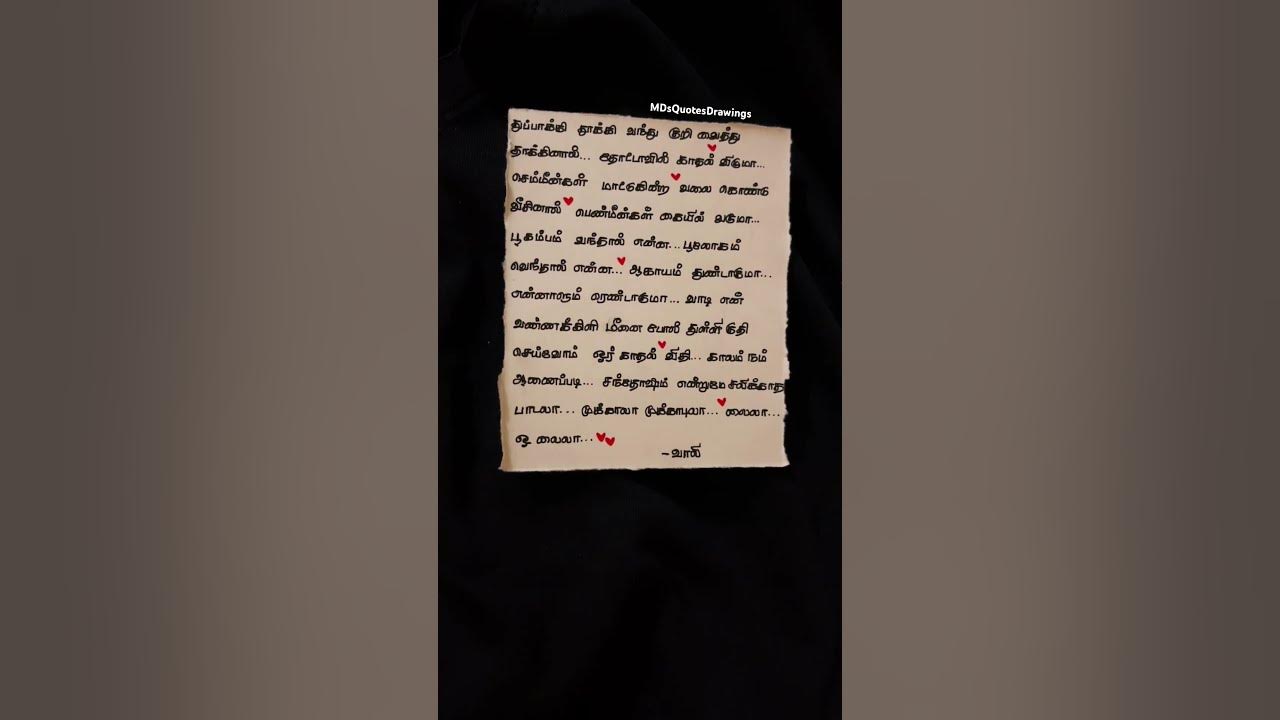 MDsQuotesDrawings
துப்பாக்கி தூக்கி வந்து குறி வைத்து
தாக்கினால்... தோட்டாவில் காதல் விடுமா...
செம்மீன்கள் மாட்டுகின்ற வலை கொண்டு
வீசினால் பெண்மீன்கள் கையில் வருமா...
பூகம்பம் வந்தால் என்ன... பூலோகம்
வெந்தால் என்ன... ஆகாயம் துண்டாகுமா...
என்னாளும் ரெண்டாகுமா... வாடி என்
வண்ணக்கிளி மீனை போல் துள்ளி குதி
செய்வோம் ஓர் காதல் விதி... காலம் நம்
ஆணைப்படி... சந்தோஷம் என்றுமே சலிக்காத
பாடலா... முக்காலா முக்காபுலா... லைலா...
ஓ லைலா...
- வாலி